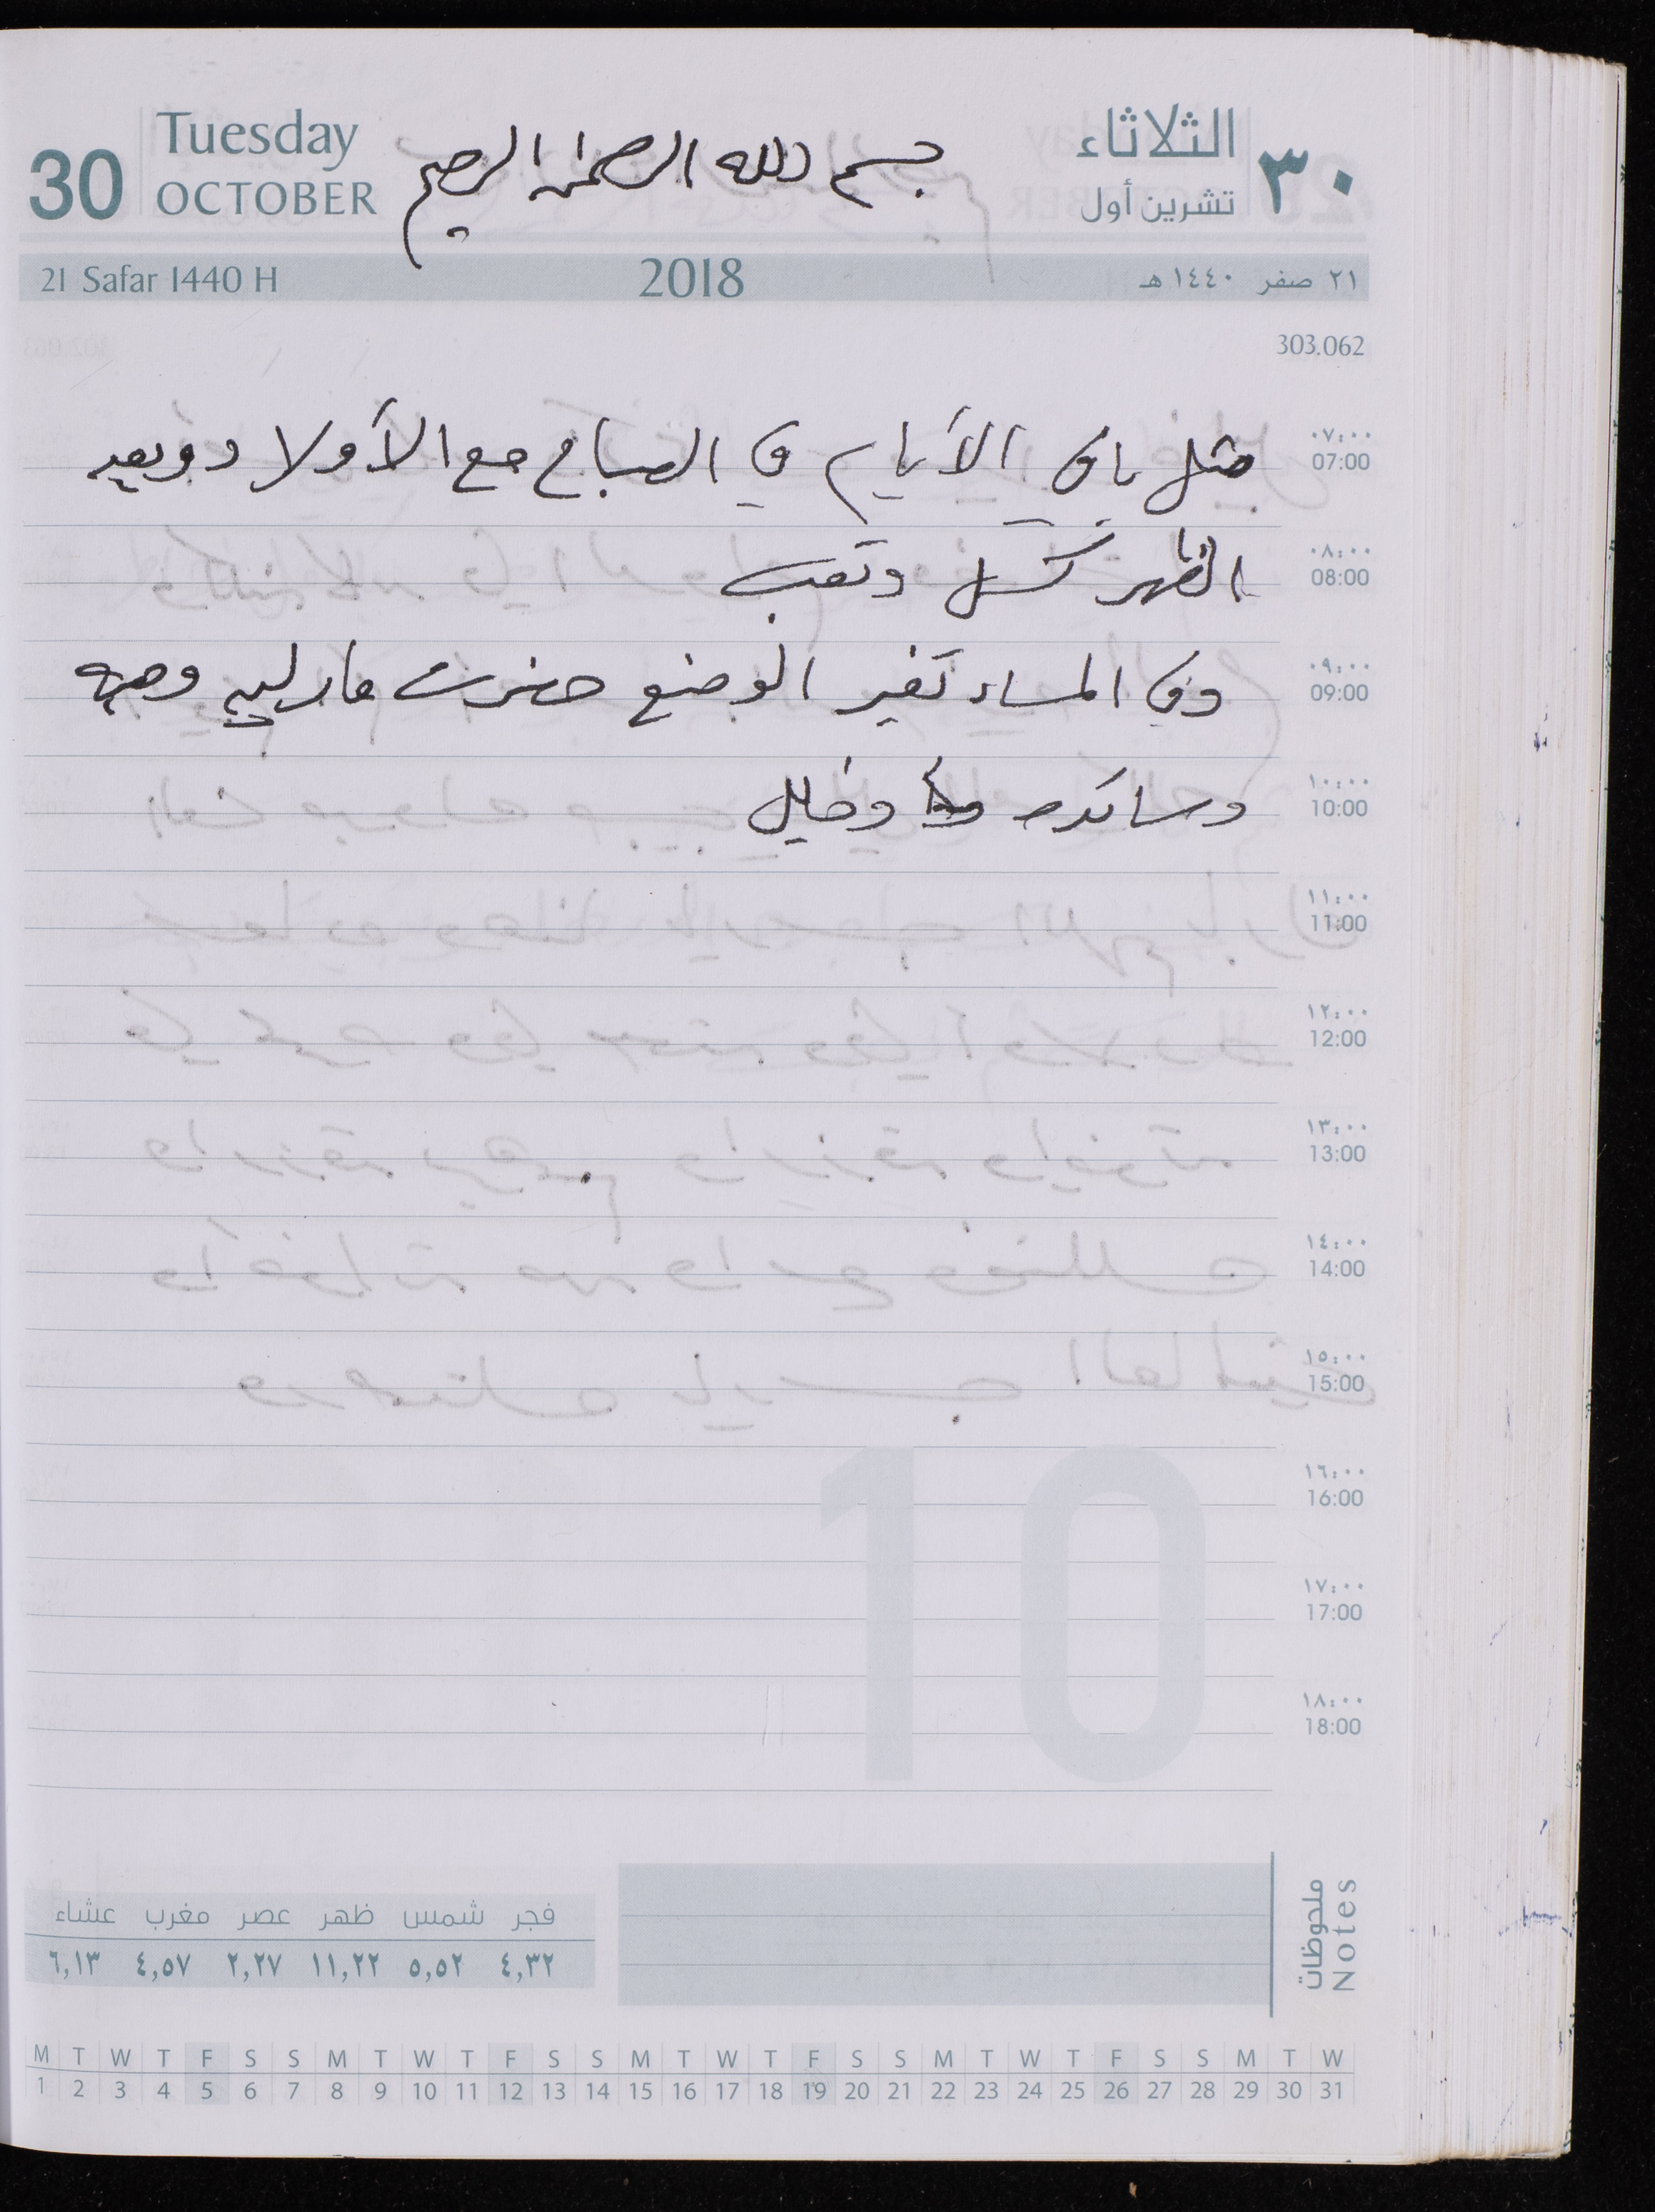 30 Tuesday OCTOBER
بسم الله الرحمن الرحيم
الثلاثاء ٣٠
تشرين أول
21 Safar 1440 H 2018 ٢١ صفر ١٤٤٠ هـ
303.062
٠٧:٠٠
07:00
مثل باقي الأيام في الصباح مع الأولاد وبعد
٠٨:٠٠
08:00
الظهر كسل وتعب
٠٩:٠٠
09:00
وفي المساء تغير الوضع حضرت مارلين وجيه
١٠:٠٠
10:00
وساندره وخليل
١١:٠٠
11:00
١٢:٠٠
12:00
١٣:٠٠
13:00
١٤:٠٠
14:00
١٥:٠٠
15:00
10
١٦:٠٠
16:00
١٧:٠٠
17:00
١٨:٠٠
18:00
ملحوظات
Notes
فجر شمس ظهر عصر مغرب عشاء
٤,٣٢ ٥,٥٢ ١١,٢٢ ٢,٢٧ ٤,٥٧ ٦,١٣
M T W T F S S M T W T F S S M T W T F S S M T W T F S S M T W
1 2 3 4 5 6 7 8 9 10 11 12 13 14 15 16 17 18 19 20 21 22 23 24 25 26 27 28 29 30 31